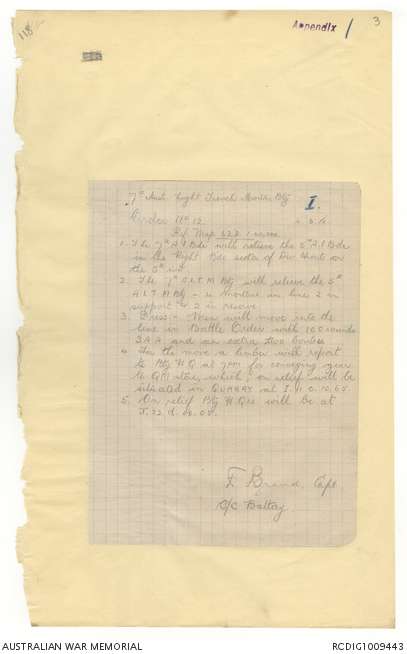 118
Appendix 1
3
7th Aust Light Trench Mortar Bty
I.
Order No 12
Ref Map 62D 1-40,000
1. The 7th A.I. Bde will relieve the 5th A.I Bde
in the Right Bde sector of Div front on
the 5th inst
2. The 7th A.L.T.M. Bty will relieve the 5th
A.L.T.M Bty - 4 Mortars in line & 2 in
support & 2 in reserve
3. Dress:- Men will move into the
line in Battle Order with 100 rounds
S.A.A and one extra two bombs
4. For the move a limber will report
to Bty H Q at 7pm for conveying gear
to QM store, which, on relief will be
situated in QUARRY at I.11.c.10.65
5. On relief Bty H Qrs will be at
J.22.d.00.05.
F Brand, Capt
O/C Battery
AUSTRALIAN WAR MEMORIAL
RCDIG1009443